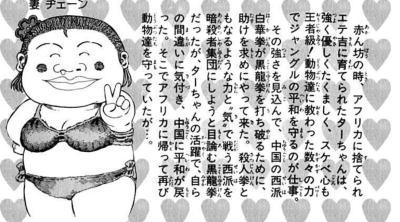 妻 ヂェーン
赤ん坊の時、アフリカに捨てられ
エテ吉に育てられたターちゃんは、
強く優しくたくましく、スケベ心も
王者級！動物達に教わった数々の力
でジャングルの平和を守るのが仕事。
その強さを見込んで、中国の西派
白華拳が黒龍拳を打ち破るために、
助けを求めにやって来た。殺人拳と
もなるような力と“気”で戦う西派を
暗殺者集団にしようと目論む黒龍拳
だったが、ターちゃんの活躍で、自ら
の間違いに気付き、中国に平和が戻
った。そこでアフリカに帰って再び
動物達を守っていたが…。